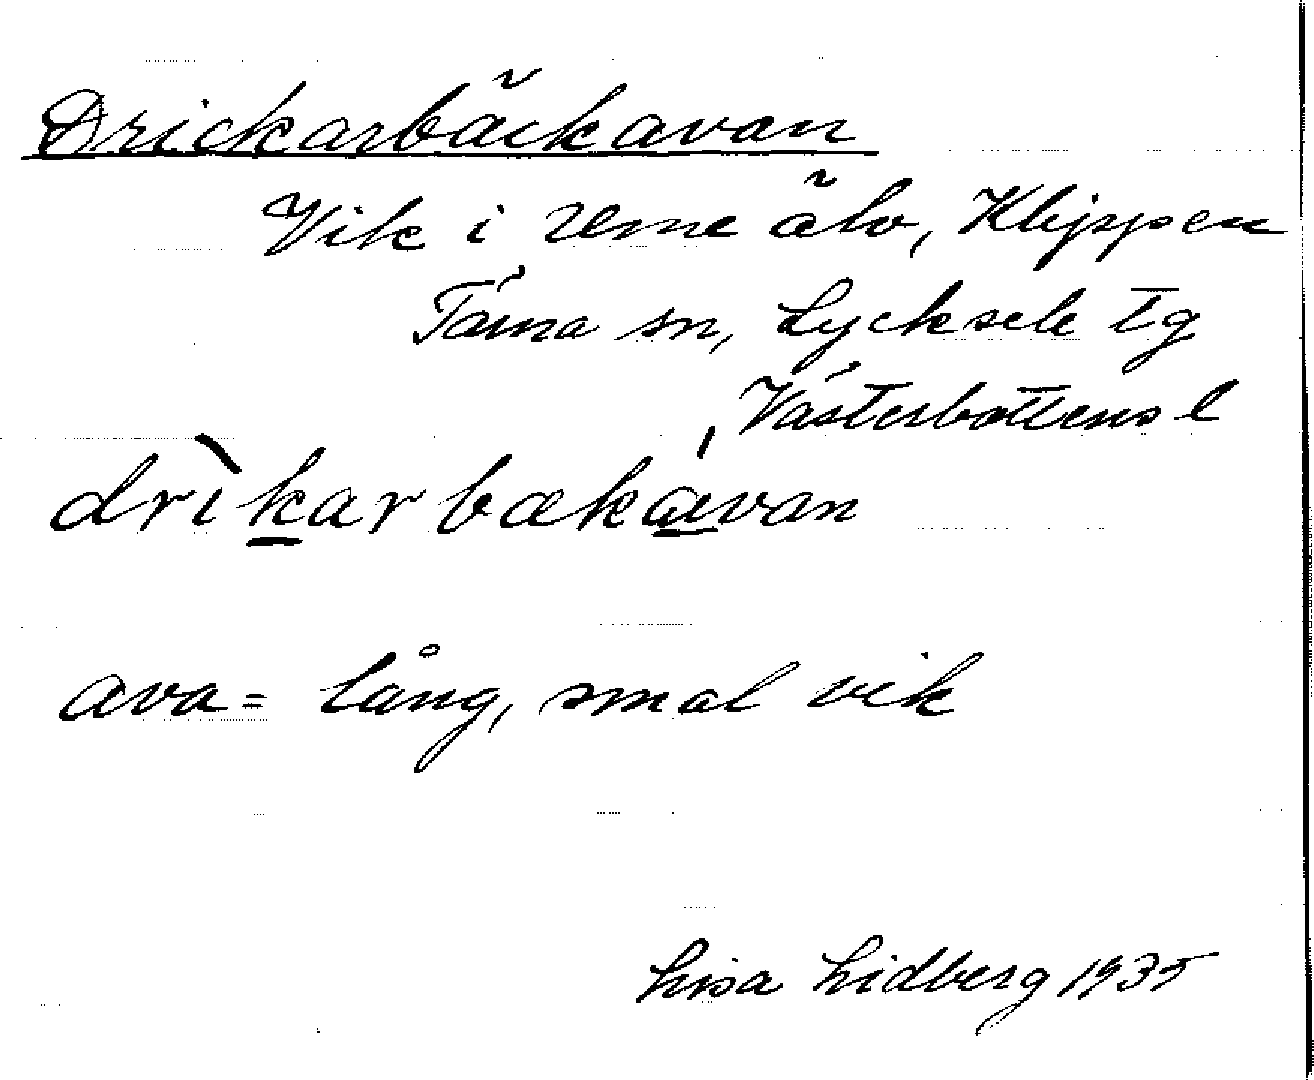 Drickarbäckavan
Vik i Ume älv, Klippen
Tärna sn, Lycksele tg
Västerbottens l
drìkar bækávan
ava = lång, smal vik
Lisa Lidberg 1935